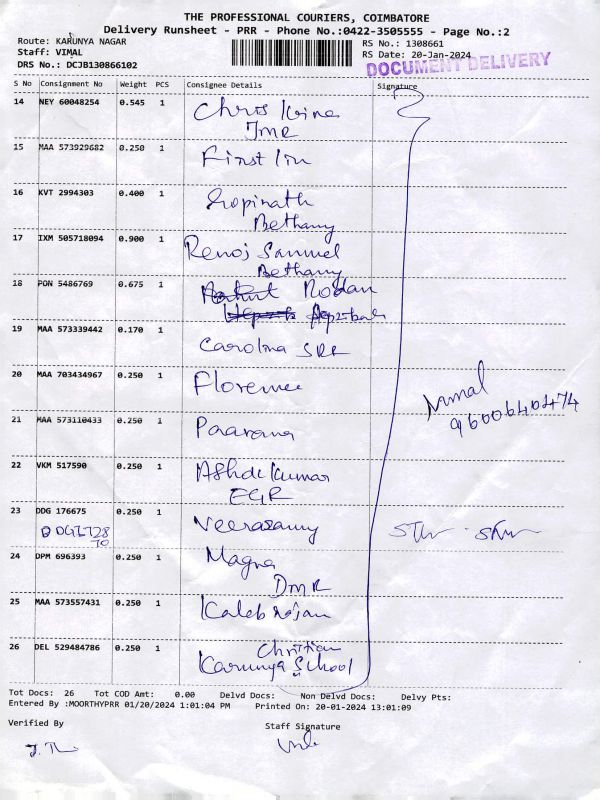 THE PROFESSIONAL COURIERS, COIMBATORE
Delivery Runsheet - PRR - Phone No.:0422-3505555 - Page No.:2
Route: KARUNYA NAGAR
RS No.: 1308661
Staff: VIMAL
RS Date: 20-Jan-2024
DRS No.: DCJB130866102
DOCUMENT DELIVERY
S No Consignment No Weight PCS Consignee Details Signature
14 NEY 60048254 0.545 1 Chris
JMR
15 MAA 573929682 0.250 1 First
16 KVT 2994303 0.400 1 Gopinath
Bethany
17 IXM 505718094 0.900 1 Renoj Samuel
Bethany
18 PON 5486769 0.675 1
19 MAA 573339442 0.170 1 Carolina SRR
20 MAA 703434967 0.250 1 Florence
Nirmal
9600640474
21 MAA 573110433 0.250 1
22 VKM 517590 0.250 1 Ashok Kumar
EGR
23 DDG 176675 0.250 1 Veerasamy
24 DPM 696393 0.250 1 Magna
DMR
25 MAA 573557431 0.250 1 Kalebrajan
26 DEL 529484786 0.250 1 Christian
Karunya School
Tot Docs: 26 Tot COD Amt: 0.00 Delvd Docs: Non Delvd Docs: Delvy Pts:
Entered By :MOORTHYPRR 01/20/2024 1:01:04 PM Printed On: 20-01-2024 13:01:09
Verified By
Staff Signature